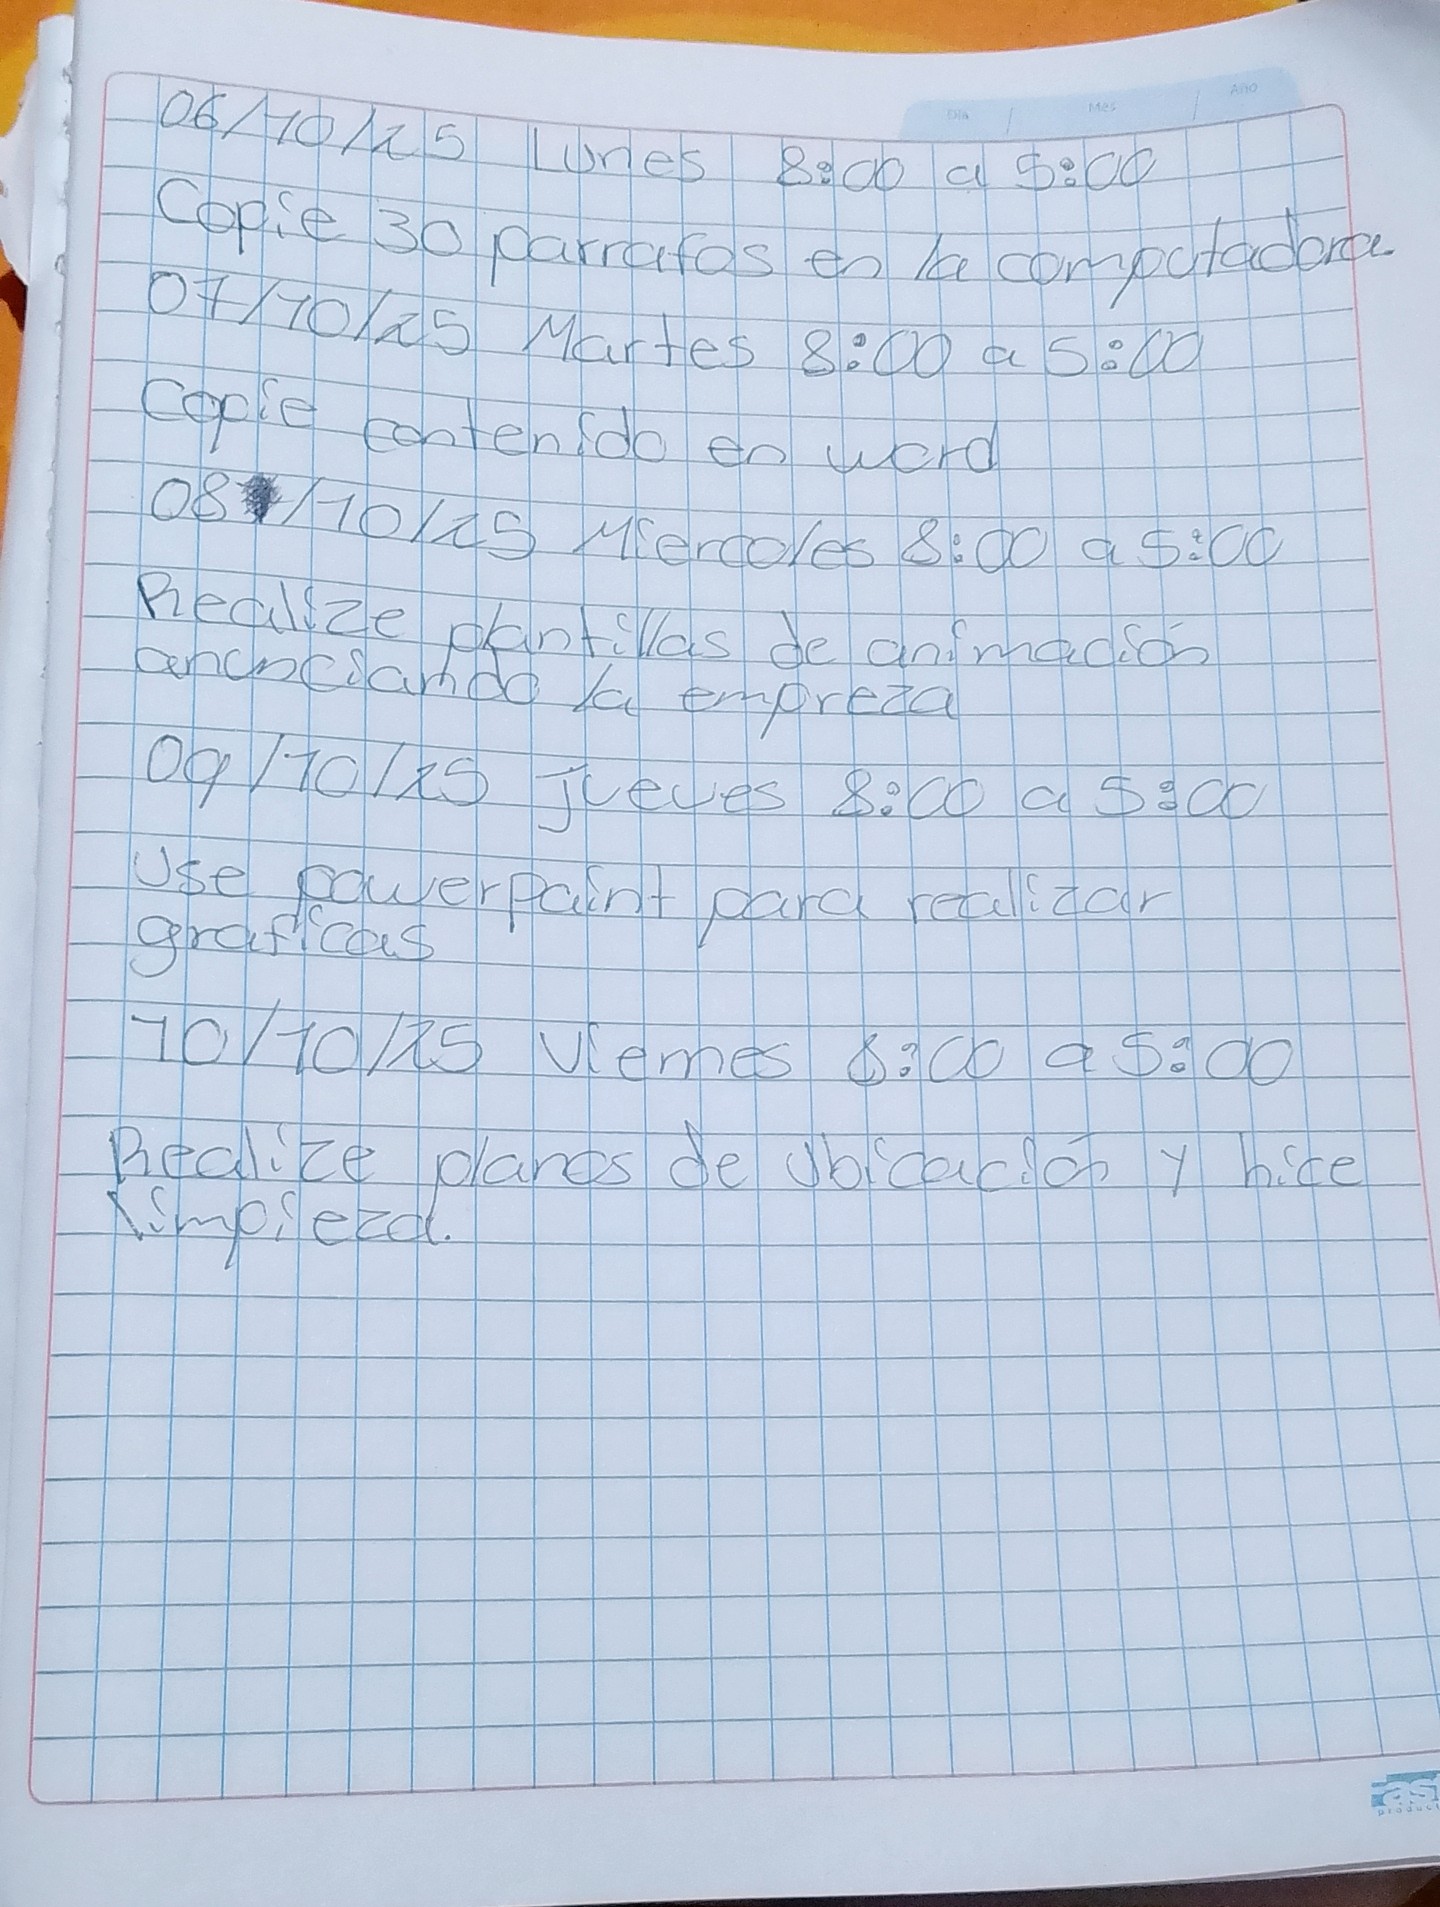 Día Mes Año
06/10/25 Lunes 8:00 a 5:00
Copie 30 parrafos en la computadora
07/10/25 Martes 8:00 a 5:00
Copie contenido en word
08/10/25 Miercoles 8:00 a 5:00
Realize plantillas de animación
anunciando la empreza
09/10/25 Jueves 8:00 a 5:00
Use powerpaint para realizar
graficas
10/10/25 Viernes 8:00 a 5:00
Realize planos de ubicación y hice
limpieza.